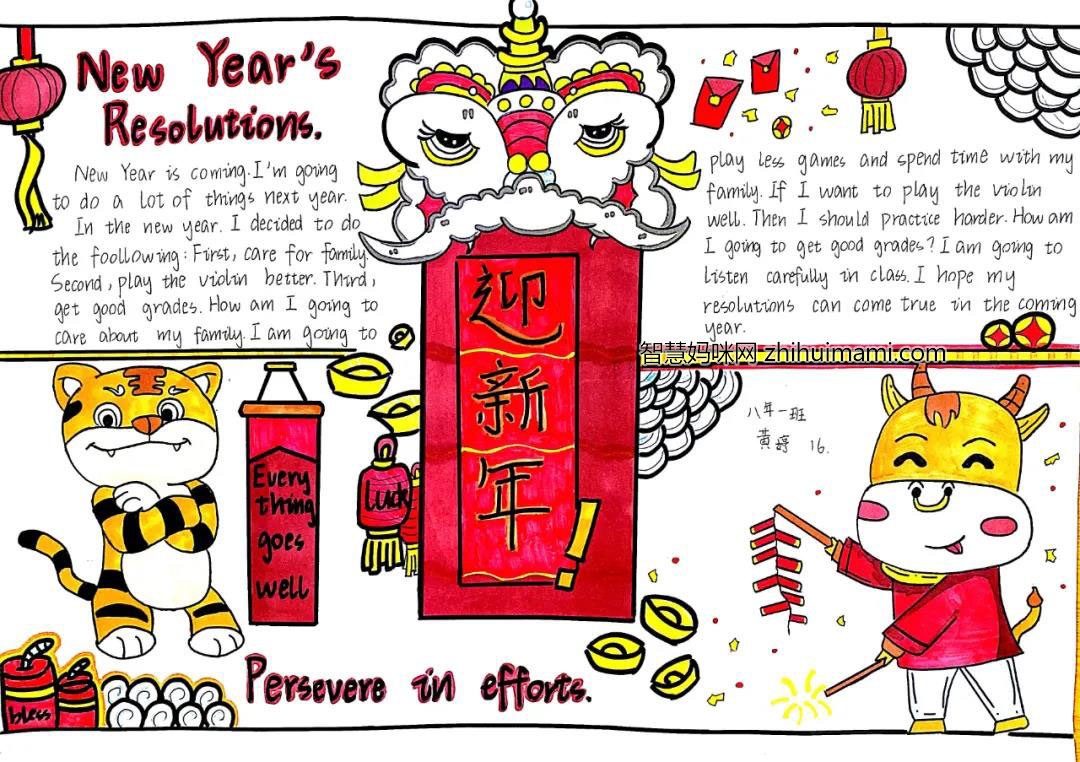 New Year's
Resolutions.
New Year is coming. I'm going
to do a lot of things next year.
In the new year. I decided to do
the foollowing: First, care for family.
Second, play the violin better. Third,
get good grades. How am I going to
care about my family. I am going to
play less games and spend time with my
family. If I want to play the violin
well. Then I should practice harder. How am
I going to get good grades? I am going to
listen carefully in class. I hope my
resolutions can come true in the coming
year.
迎
新
年
!
智慧妈咪网 zhihuimami.com
八年一班
黄婷 16.
Every
thing
goes
well
luck
bless
Persevere in efforts.